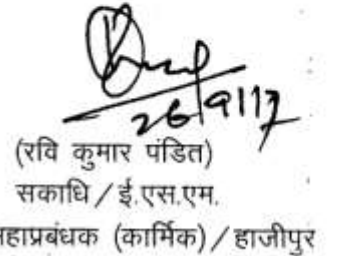 26/9/17
(रवि कुमार पंडित)
सकाधि / ई.एस.एम.
महाप्रबंधक (कार्मिक) / हाजीपुर